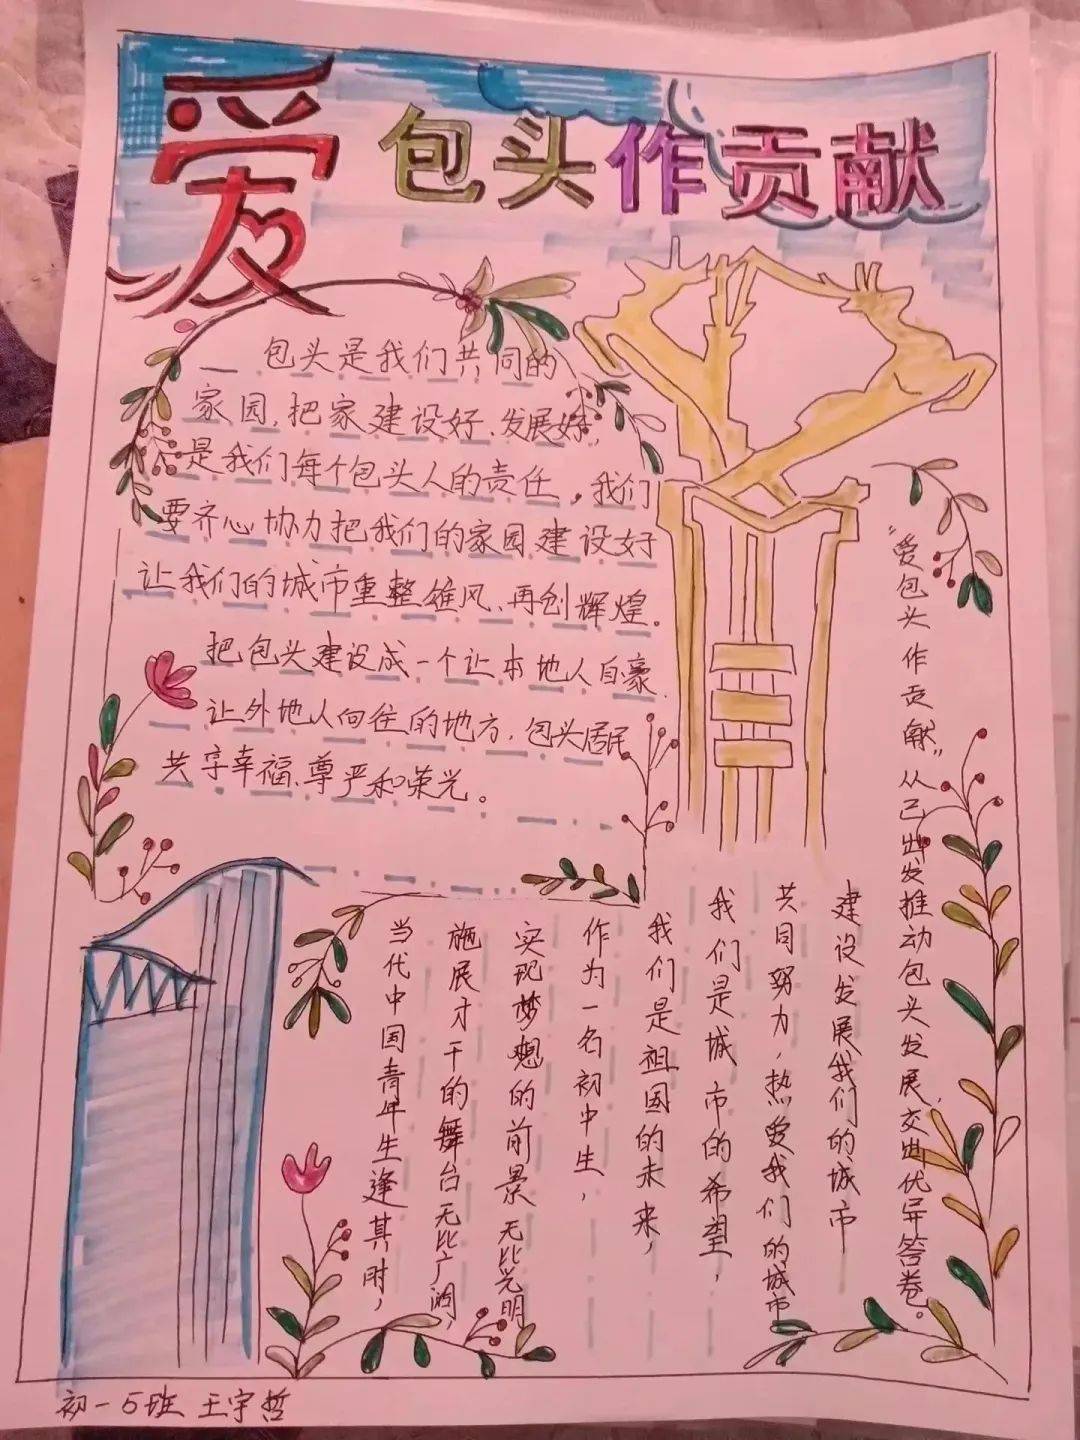 爱包头作贡献
包头是我们共同的
家园,把家建设好、发展好,
是我们每个包头人的责任,我们
要齐心协力把我们的家园建设好
让我们的城市重整雄风、再创辉煌。
把包头建设成一个让本地人自豪、
让外地人向往的地方,包头居民
共享幸福、尊严和荣光。
当代中国青年生逢其时,
施展才干的舞台无比广阔,
实现梦想的前景无比光明
作为一名初中生,
我们是祖国的未来,
我们是城市的希望,
共同努力,热爱我们的城市
建设发展我们的城市
“爱包头作贡献”从己出发推动包头发展,交出优异答卷。
初一5班 王宇哲